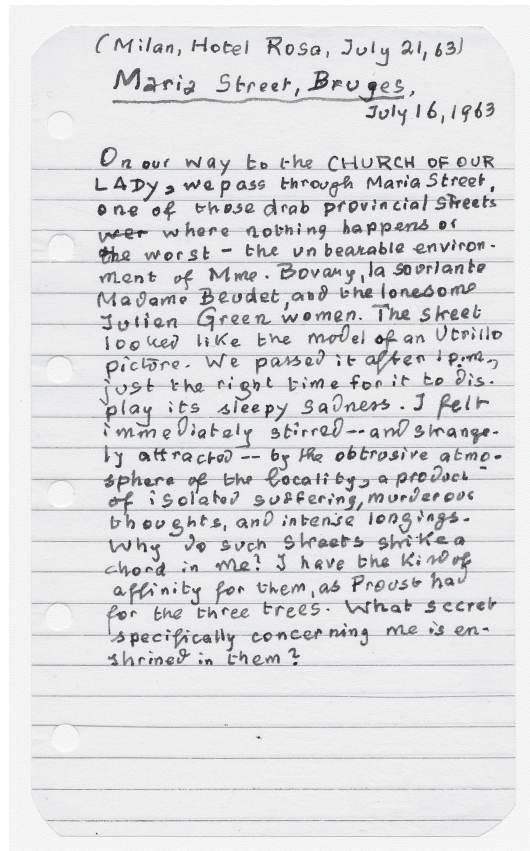 (Milan, Hotel Rosa, July 21, 63)
Maria Street, Bruges,
July 16, 1963
On our way to the CHURCH OF OUR
LADY, we pass through Maria Street,
one of those drab provincial streets
wer where nothing happens or
the worst - the unbearable environ-
ment of Mme. Bovary, la souriante
Madame Beudet, and the lonesome
Julien Green women. The street
looked like the model of an Utrillo
picture. We passed it after 1 p.m.,
just the right time for it to dis-
play its sleepy sadness. I felt
immediately stirred -- and strange-
ly attracted -- by the obtrusive atmo-
sphere of the locality, a product
of isolated suffering, murderous
thoughts, and intense longings.
Why do such streets strike a
chord in me? I have the kind of
affinity for them, as Proust had
for the three trees. What secret
specifically concerning me is en-
shrined in them?